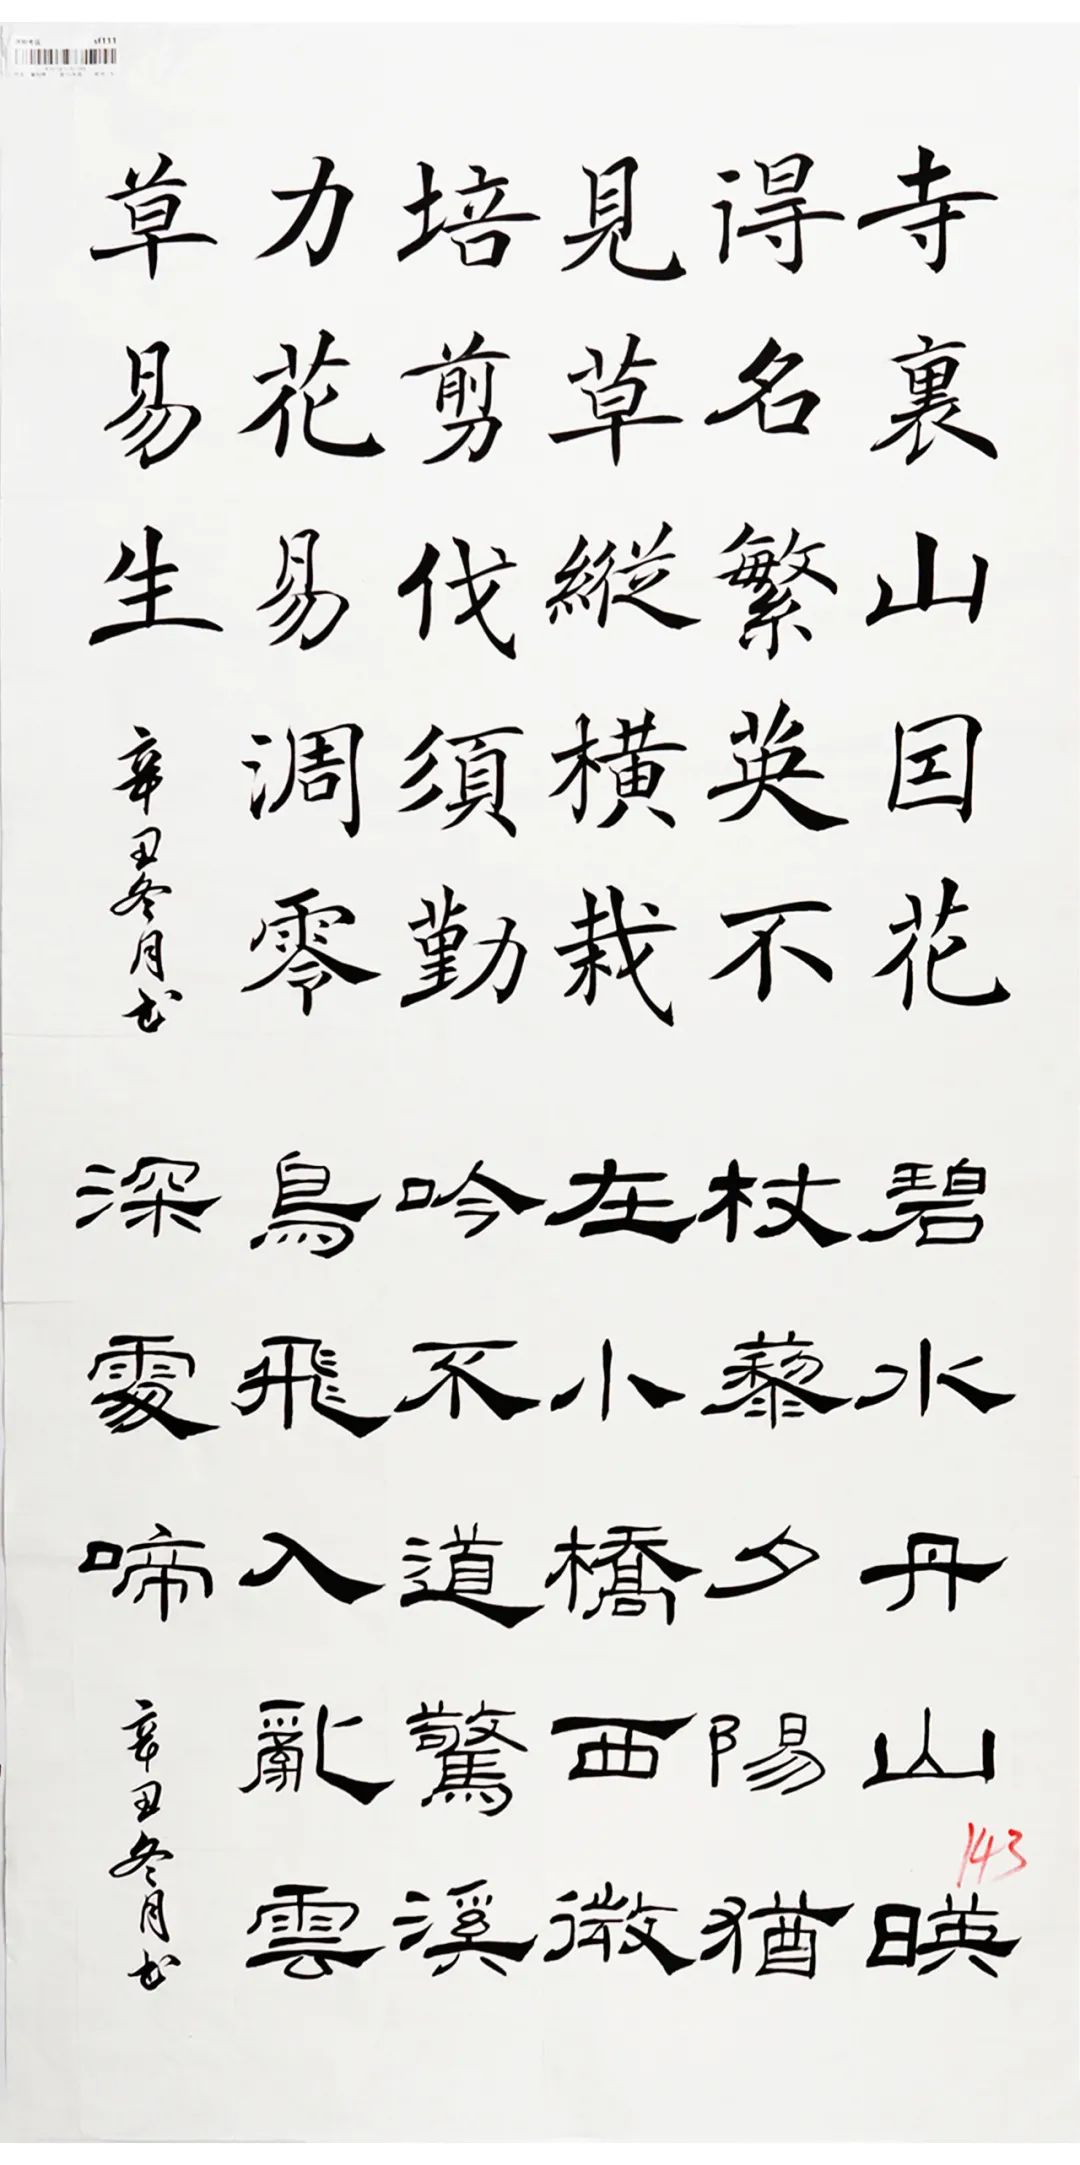 寺裏山因花
得名繁英不
見草縱橫栽
培剪伐須勤
力花易凋零
草易生
辛丑冬月书
碧水丹山映
杖藜夕陽猶
在小橋西微
吟不道驚溪
鳥飛入亂雲
深處啼
辛丑冬月书
143
sf111